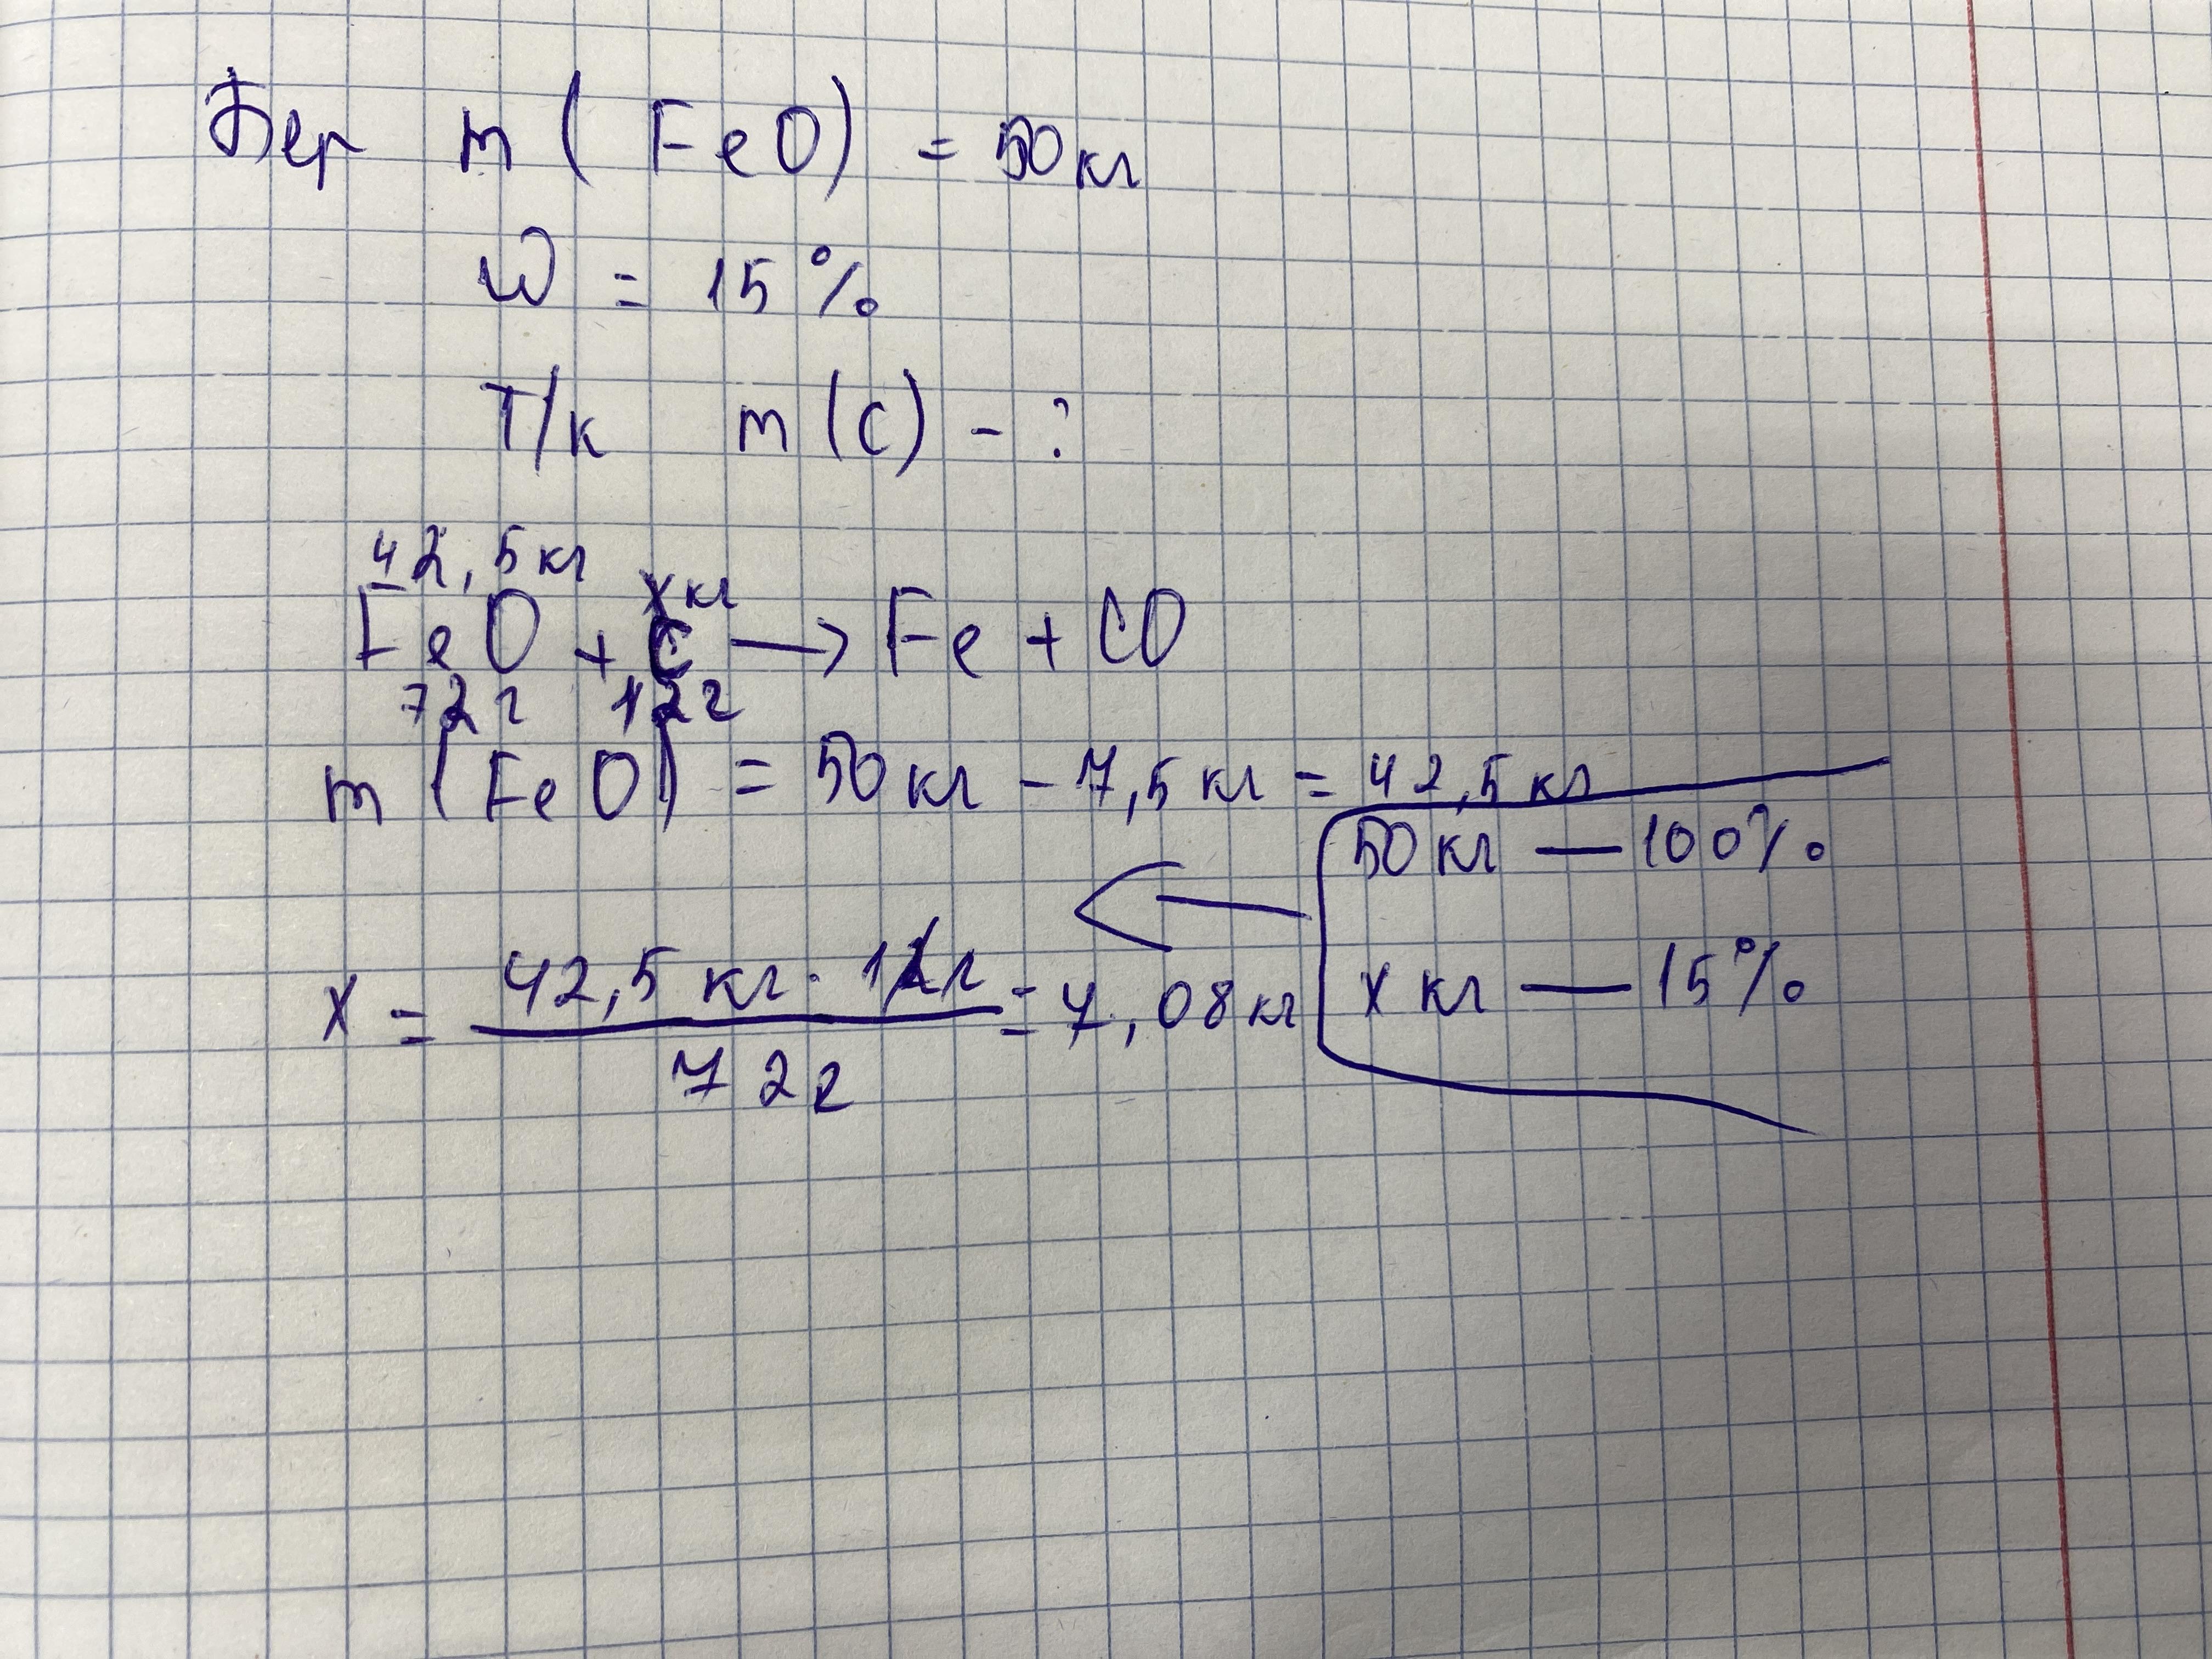 Бер m ( FeO ) = 50 кг
W = 15 %
Т/к m (C) - ?
42,5 кг x кг
FeO + C → Fe + CO
72 г 12 г
m (FeO) = 50 кг - 7,5 кг = 42,5 кг
50 кг — 100%
x кг — 15%
x = 42,5 кг · 12 г / 72 г = 7,08 кг